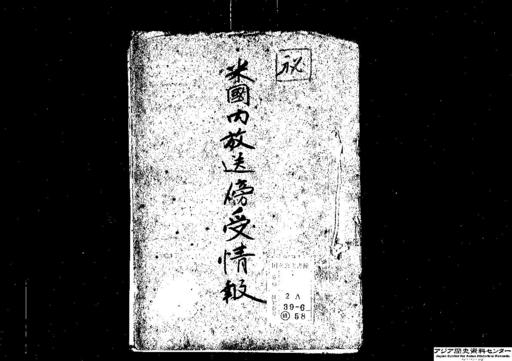 秘
米國内放送傍受情報
2A
39-6
58
アジア歴史資料センター
Japan Center for Asian Historical Records